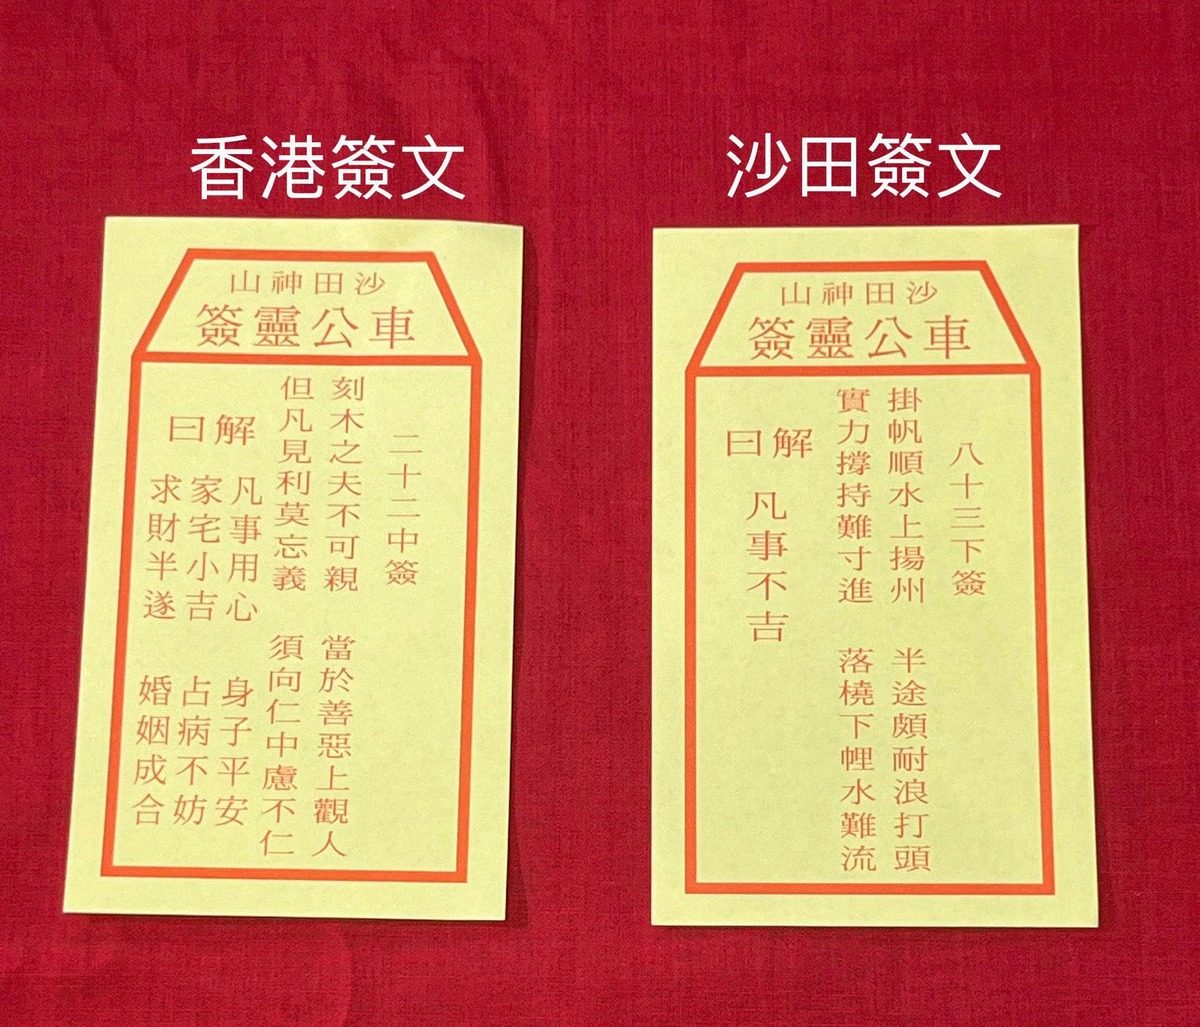 香港簽文
沙田神山
車公靈簽
二十二中簽
刻木之夫不可親　當於善惡上觀人
但凡見利莫忘義　須向仁中慮不仁
解曰
凡事用心　身子平安
家宅小吉　占病不妨
求財半遂　婚姻成合
沙田簽文
沙田神山
車公靈簽
八十三下簽
掛帆順水上揚州　半途頗耐浪打頭
實力撐持難寸進　落橈下悝水難流
解曰
凡事不吉